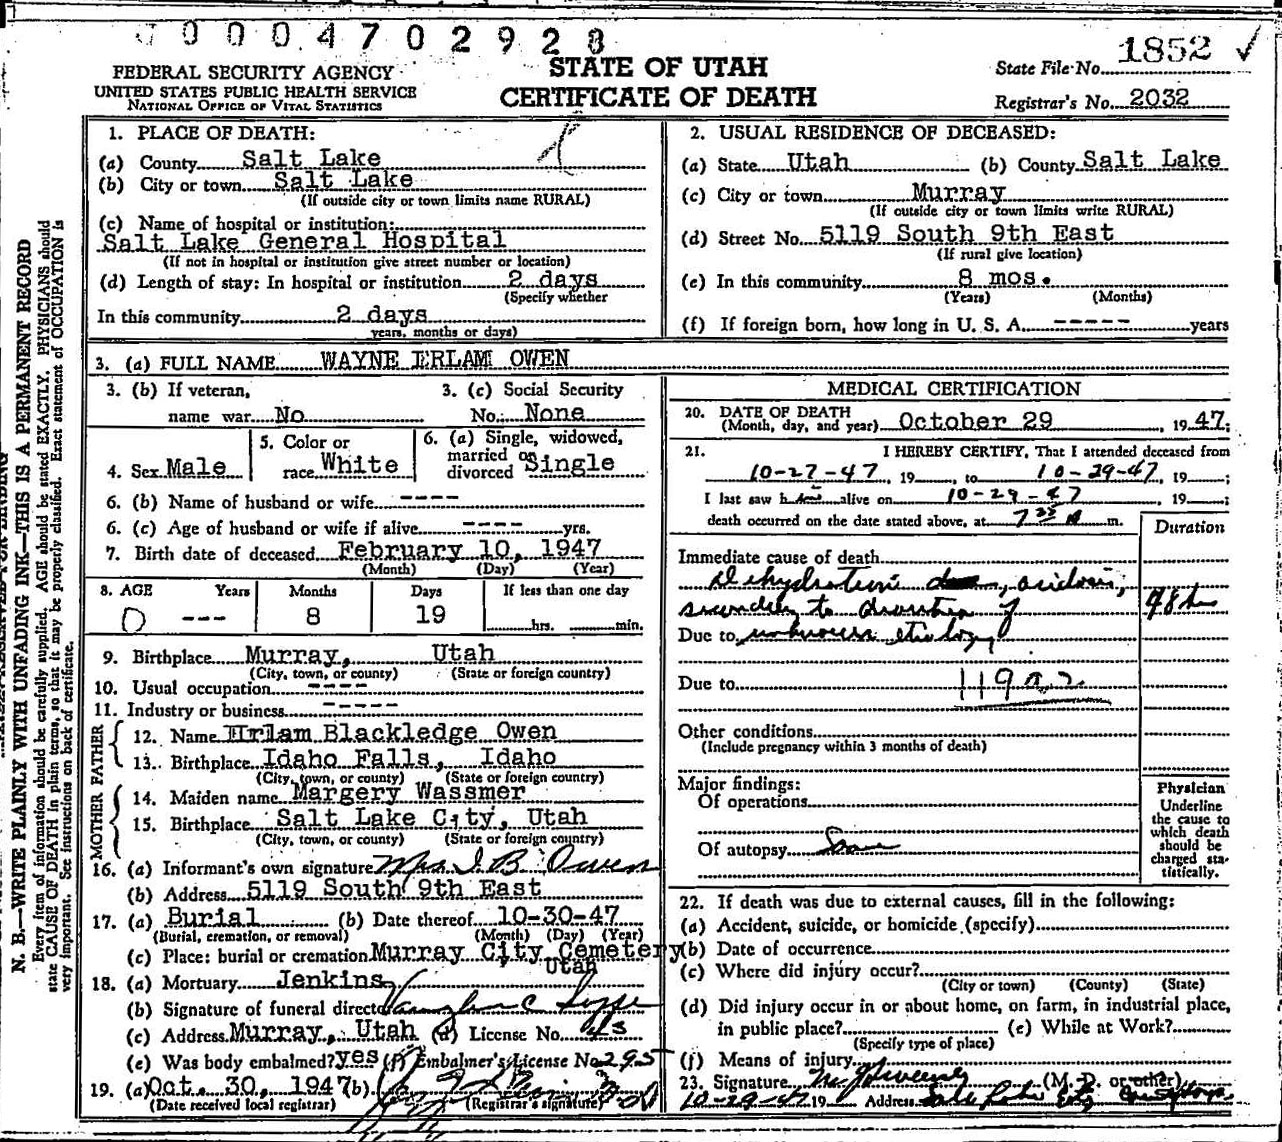 00004702928
FEDERAL SECURITY AGENCY
UNITED STATES PUBLIC HEALTH SERVICE
NATIONAL OFFICE OF VITAL STATISTICS
STATE OF UTAH
CERTIFICATE OF DEATH
1852 ✓
State File No.
Registrar's No. 2032
N. B.—WRITE PLAINLY WITH UNFADING INK—THIS IS A PERMANENT RECORD
Every item of information should be carefully supplied. AGE should be stated EXACTLY. PHYSICIANS should
state CAUSE OF DEATH in plain terms, so that it may be properly classified. Exact statement of OCCUPATION is
very important. See instructions on back of certificate.
1. PLACE OF DEATH:
(a) County Salt Lake
(b) City or town Salt Lake
(If outside city or town limits name RURAL)
(c) Name of hospital or institution:
Salt Lake General Hospital
(If not in hospital or institution give street number or location)
(d) Length of stay: In hospital or institution 2 days
(Specify whether
In this community 2 days
years, months or days)
2. USUAL RESIDENCE OF DECEASED:
(a) State Utah (b) County Salt Lake
(c) City or town Murray
(If outside city or town limits write RURAL)
(d) Street No. 5119 South 9th East
(If rural give location)
(e) In this community 8 mos.
(Years) (Months)
(f) If foreign born, how long in U. S. A. ----- years
3. (a) FULL NAME WAYNE ERLAM OWEN
3. (b) If veteran, 3. (c) Social Security
name war No No. None
4. Sex Male
5. Color or
race White
6. (a) Single, widowed,
married or
divorced Single
6. (b) Name of husband or wife ----
6. (c) Age of husband or wife if alive ---- yrs.
7. Birth date of deceased February 10, 1947
(Month) (Day) (Year)
8. AGE Years Months Days If less than one day
0 --- 8 19 hrs. min.
9. Birthplace Murray, Utah
(City, town, or county) (State or foreign country)
10. Usual occupation ----
11. Industry or business -----
FATHER
12. Name Erlam Blackledge Owen
13. Birthplace Idaho Falls, Idaho
(City, town, or county) (State or foreign country)
MOTHER
14. Maiden name Margery Wassmer
15. Birthplace Salt Lake City, Utah
(City, town, or county) (State or foreign country)
16. (a) Informant's own signature Mrs. I. B. Owen
(b) Address 5119 South 9th East
17. (a) Burial (b) Date thereof 10-30-47
(Burial, cremation, or removal) (Month) (Day) (Year)
(c) Place: burial or cremation Murray City Cemetery
Utah
18. (a) Mortuary Jenkins
(b) Signature of funeral director
(c) Address Murray, Utah (d) License No. 43
(e) Was body embalmed? yes (f) Embalmer's License No 295
19. (a) Oct. 30, 1947 (b)
(Date received local registrar) (Registrar's signature)
MEDICAL CERTIFICATION
20. DATE OF DEATH
(Month, day, and year) October 29, 1947;
21. I HEREBY CERTIFY, That I attended deceased from
10-27-47, 19 , to 10-29-47, 19 ;
I last saw him alive on 10-29-47 19 ;
death occurred on the date stated above, at 7 m.
Duration
Immediate cause of death
Dehydration, acidosis,
secondary to diarrhea of 48 hrs
Due to unknown etiology
Due to 119
Other conditions
(Include pregnancy within 3 months of death)
Major findings:
Of operations
Of autopsy Same
Physician
Underline
the cause to
which death
should be
charged sta-
tistically.
22. If death was due to external causes, fill in the following:
(a) Accident, suicide, or homicide (specify)
(b) Date of occurrence
(c) Where did injury occur?
(City or town) (County) (State)
(d) Did injury occur in or about home, on farm, in industrial place,
in public place? (e) While at Work?
(Specify type of place)
(f) Means of injury
23. Signature (M. D. or other)
10-29-47 19 Address Salt Lake